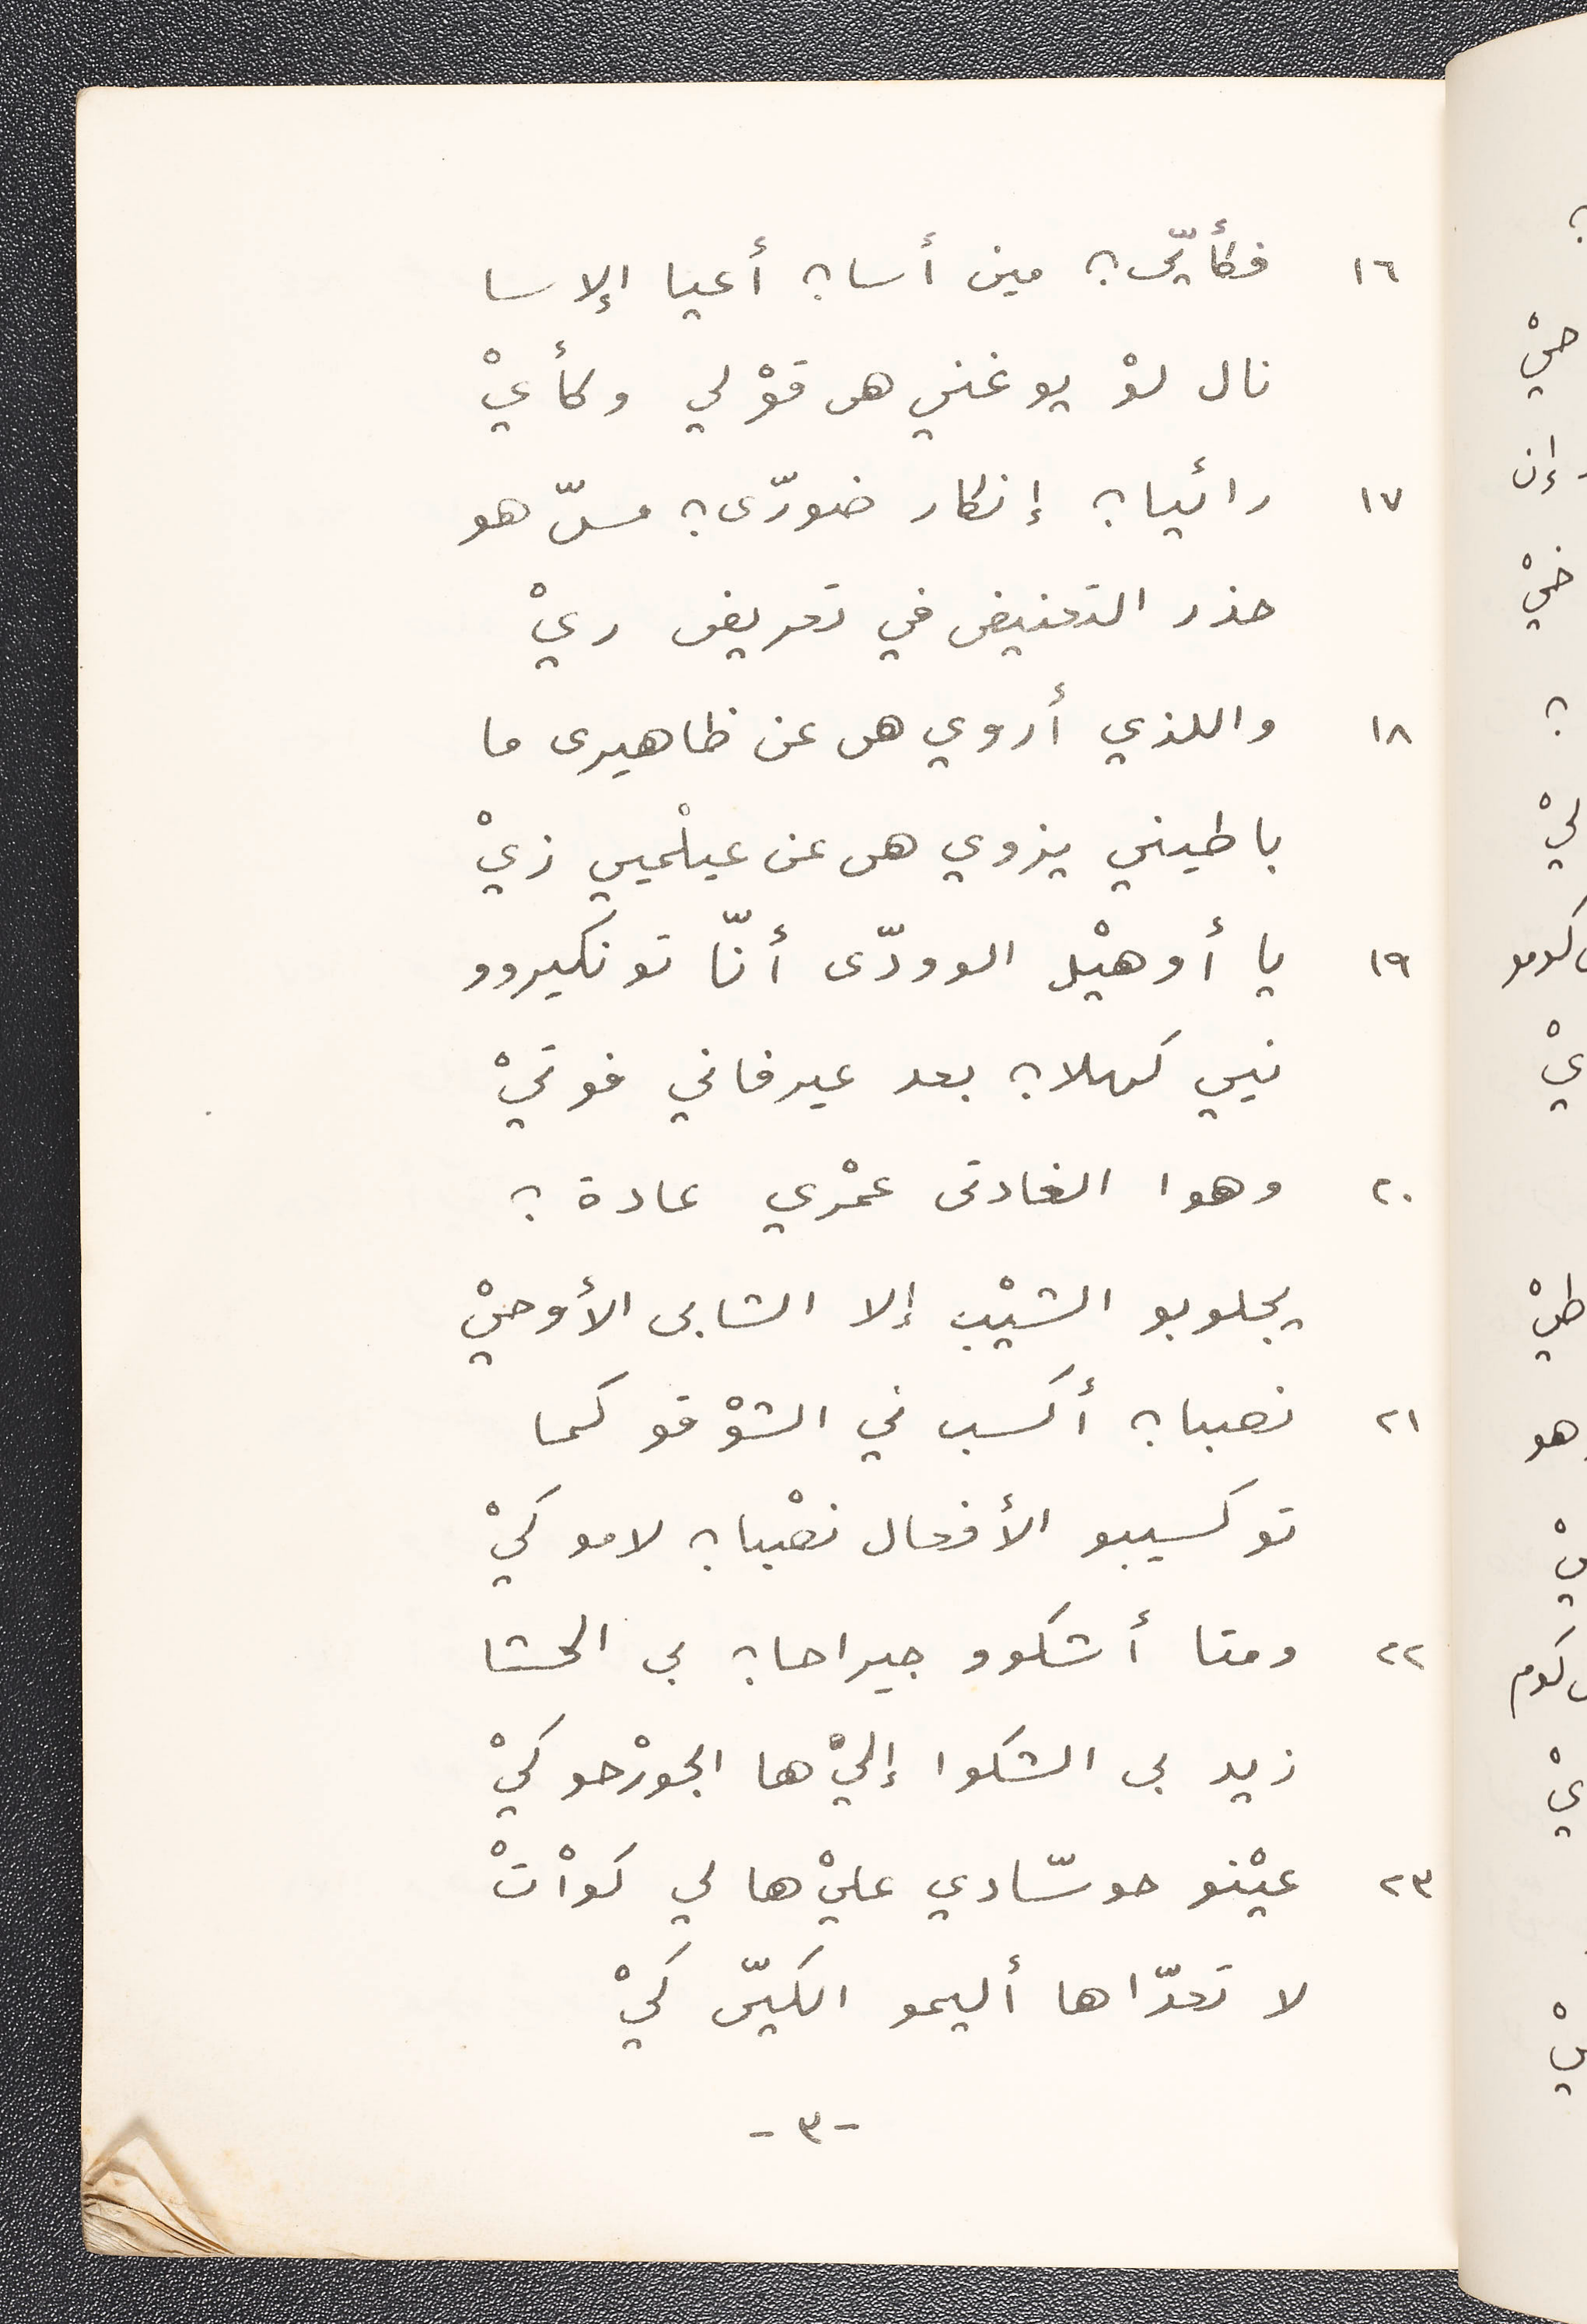 ١٦ فكأيّى؟ مين أسا؟ أعيا الإسا
نال لوْ يوغنيي هى قوْلي وكأيْ
١٧ رائيا؟ إنكار ضورّى؟ مسّ هو
حذر التعنيفى في تعريفى ريْ
١٨ واللذي أروي هى عن ظاهيرى ما
باطيني يزوي هى عن عيلْميي زيْ
١٩ يا أوهيْل الوودّى أنّا تونكيروو
نيي كهلا؟ بعد عيرفاني فوتيْ
٢٠ وهوا الغادتى عمْري عادة ؟
يجلوبو الشيْب إلا الشابى الأوحيْ
٢١ نصبا؟ أكسب ني الشوْقو كما
توكسيبو الأفعال نصْبا؟ لامو كيْ
٢٢ ومتا أشكوو جيراحا؟ بي الحشا
زيد بى الشكوا إليْها الجورْحو كيْ
٢٣ عيْنو حوسّادي عليْها لي كواْتْ
لا تعدّاها أليمو الكيّى كيْ
-٣-